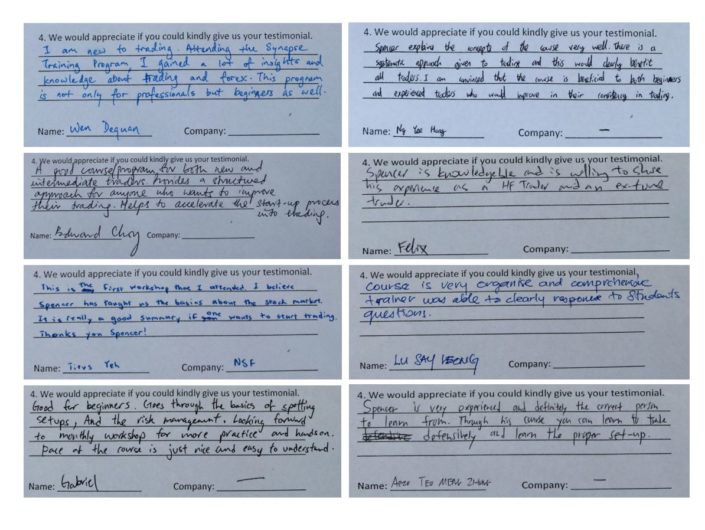 4. We would appreciate if you could kindly give us your testimonial.
I am new to trading. Attending the Synapse
Training Program, I gained a lot of insights and
knowledge about trading and forex. This program
is not only for professionals but beginners as well.
Name: Wen Dequan Company:
4. We would appreciate if you could kindly give us your testimonial.
Spencer explains the concepts of the course very well. There is a
systematic approach given to trading and this would clearly benefit
all traders. I am convinced that the course is beneficial to both beginners
and experienced traders who would improve in their consistency in trading.
Name: Ng Yee Hung Company: —
4. We would appreciate if you could kindly give us your testimonial.
A good course/program for both new and
intermediate traders. Provides a structured
approach for anyone who wants to improve
their trading. Helps to accelerate the start-up process
into trading.
Name: Edward Choy Company:
4. We would appreciate if you could kindly give us your testimonial.
Spencer is knowledgeable and is willing to share
his experience as a HF Trader and an ex-fund
trader.
Name: Felix Company:
4. We would appreciate if you could kindly give us your testimonial.
This is the First workshop that I attended. I believe
Spencer has taught us the basics about the stock market.
It is really a good summary, if one wants to start trading.
Thanks you Spencer!
Name: Titus Yeh Company: NSF
4. We would appreciate if you could kindly give us your testimonial,
Course is very organise and comprehensive
trainer was able to clearly response to students
questions.
Name: LU SAY LEONG Company:
4. We would appreciate if you could kindly give us your testimonial.
Good for beginners. Goes through the basics of spotting
setups, And the risk management. Looking forward
to monthly workshop for more practice and hands on.
Pace of the course is just nice and easy to understand.
Name: Gabriel Company: —
4. We would appreciate if you could kindly give us your testimonial.
Spencer is very experienced and definitely the correct person
to learn from. Through his course you can learn to trade
defensively and learn the proper set-up.
Name: TEO MENG ZHONG Company: —